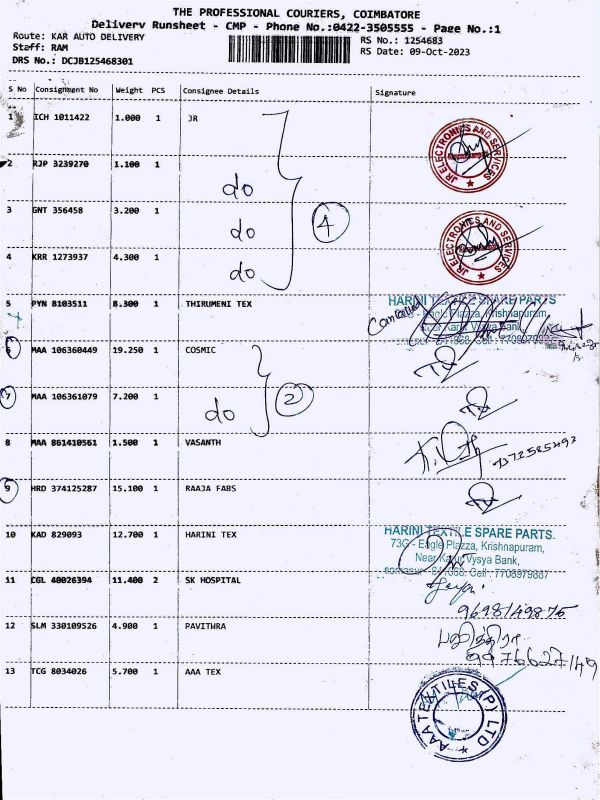 THE PROFESSIONAL COURIERS, COIMBATORE
Delivery Runsheet - CMP - Phone No.:0422-3505555 - Page No.:1
Route: KAR AUTO DELIVERY RS No.: 1254683
Staff: RAM RS Date: 09-Oct-2023
DRS No.: DCJB125468301
S No Consignment No Weight PCS Consignee Details Signature
1 ICH 1011422 1.000 1 JR
JR ELECTRONICS AND SERVICES
2 RJP 3239270 1.100 1 do
3 GNT 356458 3.200 1 do 4
JR ELECTRONICS AND SERVICES
4 KRR 1273937 4.300 1 do
5 PYN 8103511 8.300 1 THIRUMENI TEX Cancelled
HARINI TEXTILE SPARE PARTS
73G - Eagle Plazza, Krishnapuram,
Near Karur Vysya Bank,
6 MAA 106360449 19.250 1 COSMIC
7 MAA 106361079 7.200 1 do 2
8 MAA 861410561 1.500 1 VASANTH
9 HRD 374125287 15.100 1 RAAJA FABS
10 KAD 829093 12.700 1 HARINI TEX
HARINI TEXTILE SPARE PARTS.
73G - Eagle Plazza, Krishnapuram,
Near Karur Vysya Bank,
641668. Cell : 7708979887
11 CGL 40026394 11.400 2 SK HOSPITAL
9698149875
12 SLM 330109526 4.900 1 PAVITHRA பவித்ரா
9976627149
13 TCG 8034026 5.700 1 AAA TEX
AAA TEXTILES (P) LTD